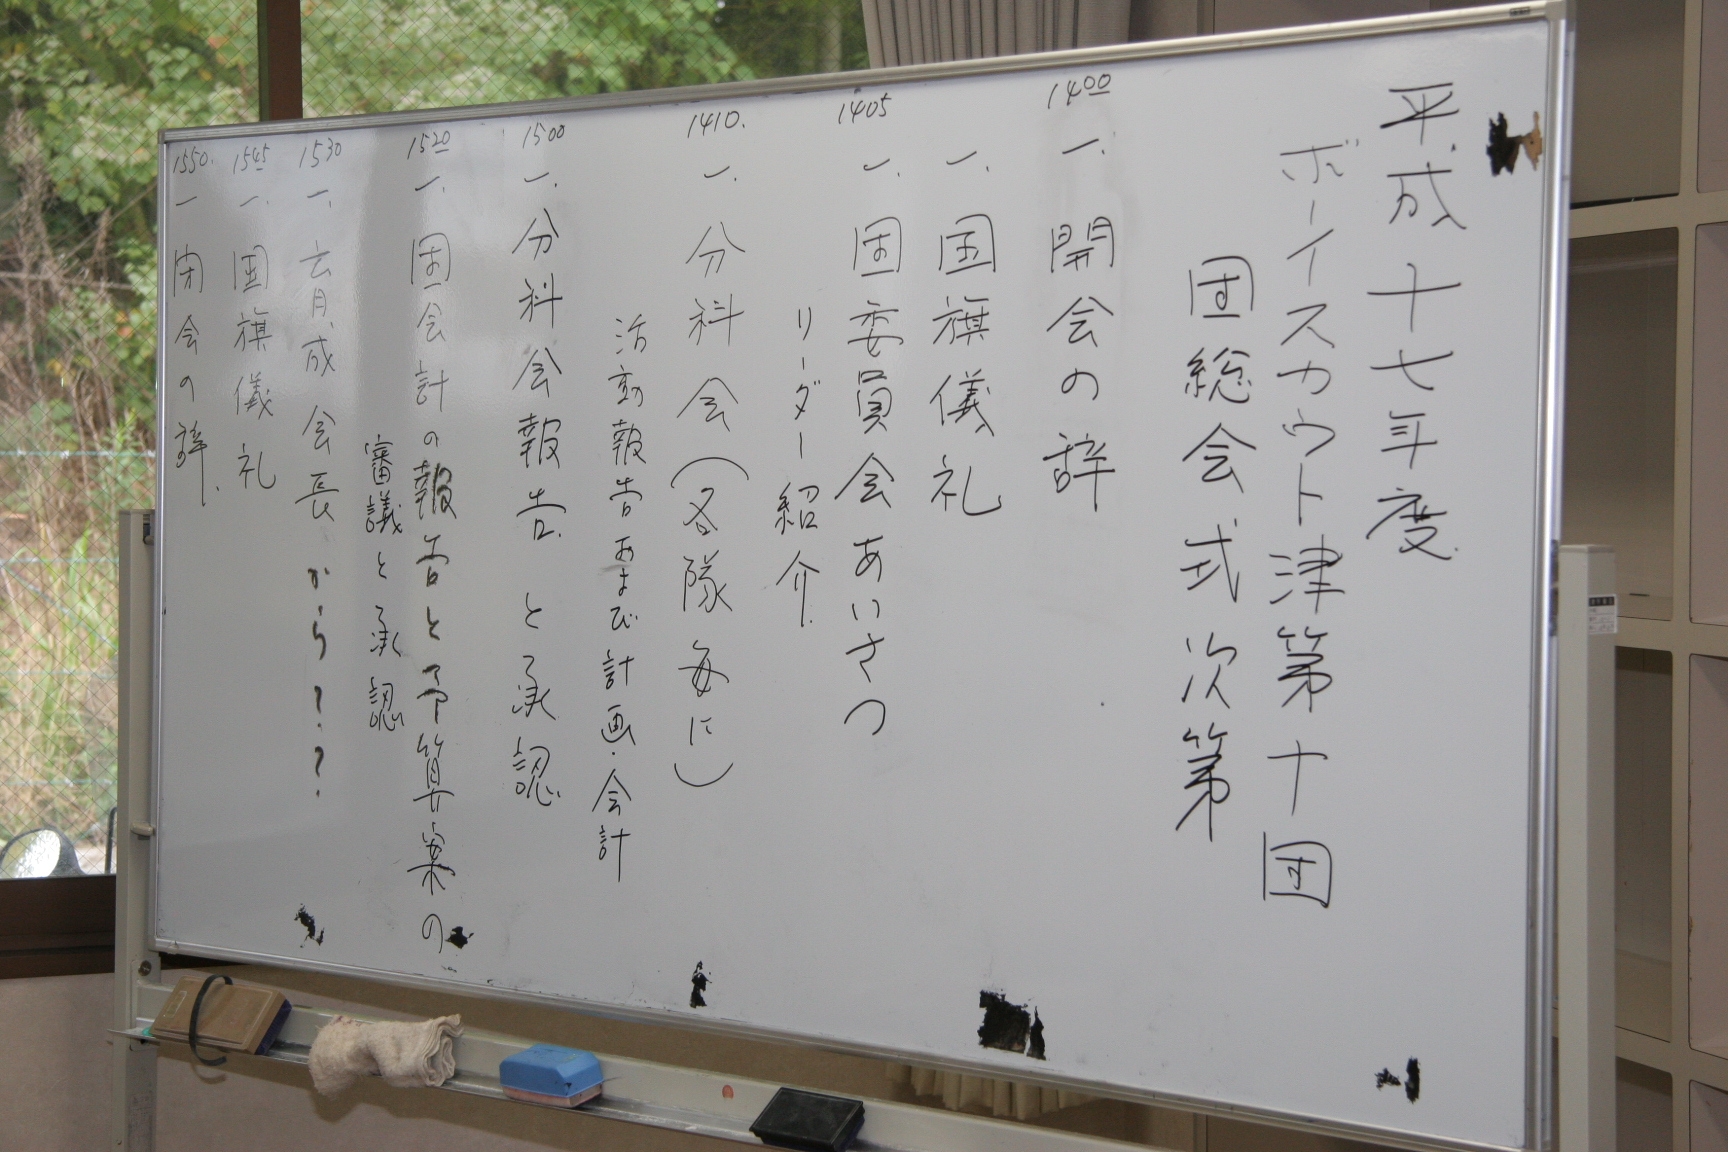 平成十七年度
ボーイスカウト津第十団
団総会式次第
1400
一、開会の辞
一、国旗儀礼
1405
一、団委員会あいさつ
リーダー紹介
1410.
一、分科会(各隊毎に)
活動報告および計画・会計
1500
一、分科会報告と承認
1520
一、団会計の報告と予算案の
審議と承認
1530
一、育成会長から??
1545
一、国旗儀礼
1550.
一閉会の辞.